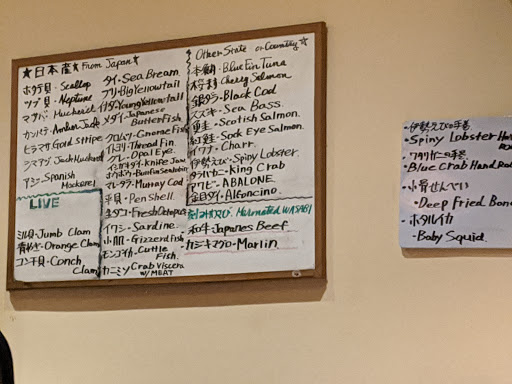 ★日本産★ From Japan★
ホタテ貝・Scallop
ツブ貝・Neptune
カンパチ・Amber Jack
ヒラマサ・Gold stripe
シマアジ・Jack Mackerel
アジ・Spanish
Mackerel
LIVE
ミル貝・Jumb Clam
青やぎ・Orange Clam
コン子貝・Conch
Clam
タイ・Sea Bream
ブリ・Big Yellowtail
イナダ・Young Yellowtail
メダイ・Japanese
Butterfish
クロムツ・Gnome Fish
イトヨリ・Thread Fin
クレ・Opal Eye
Knife Jaw
ホウボウ・
マレーダラ・Murray Cod
平貝・Pen Shell
生ダコ・Fresh Octopus
イワシ・Sardine
小肌・Gizzerd Fish
モンゴイカ・Cuttle
Fish
カニミソ Crab Viscera
w/MEAT
Other State or Country★
本鮪・Blue Fin Tuna
Cherry Salmon
銀ダラ・Black Cod
スズキ・Sea Bass
Scotish Salmon
紅鮭・Sock Eye Salmon
イワナ・Charr
伊勢えび・Spiny Lobster
タラバカニ・King Crab
アワビ・ABALONE
金目ダイ・Alfoncino
刻みわさび Marinated WASABI
和牛 Japanes Beef
カジキマグロ・Marlin
・伊勢えびの手巻
・Spiny Lobster
・ワタリガニの手巻
Blue Crab Hand
・小骨せんべい
・Deep Fried Bon
・ホタルイカ
・Baby Squid